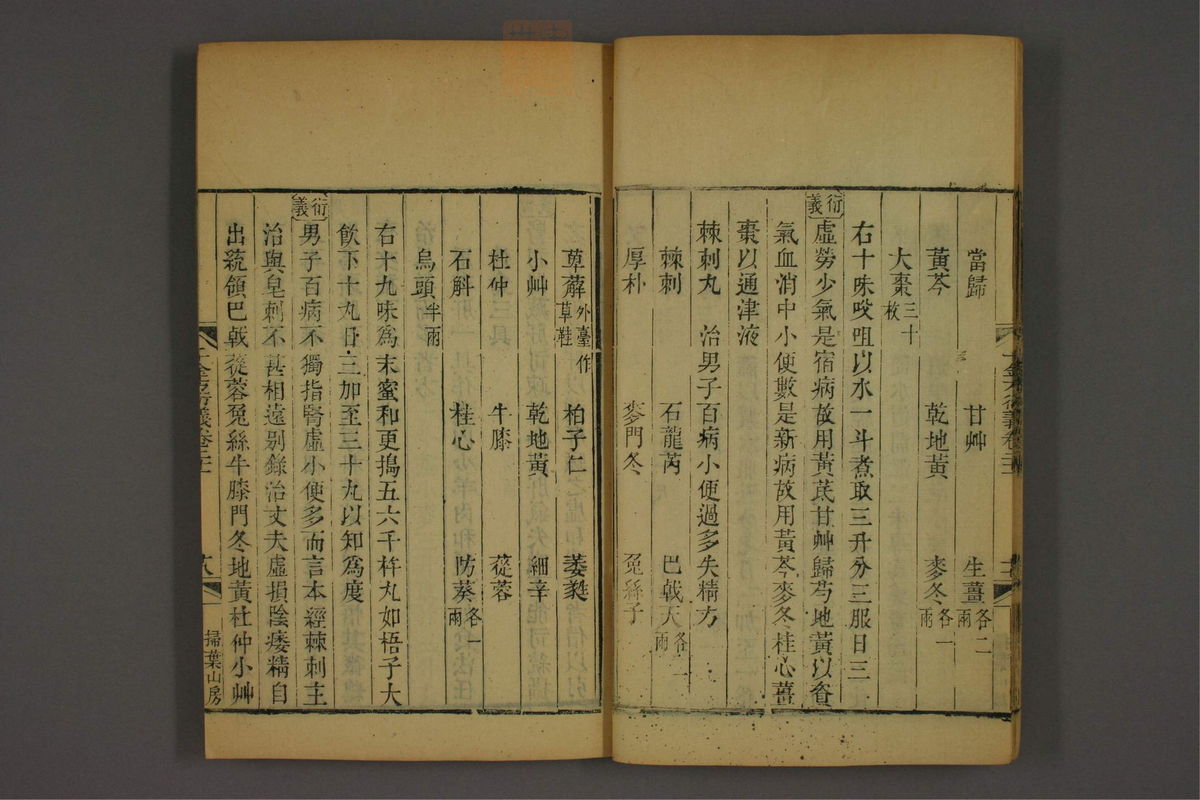 當歸　甘艸　生薑各二兩
黃芩　乾地黃　麥冬各一兩
大棗三十枚
右十味㕮咀以水一斗煮取三升分三服日三
衍義 虛勞少氣是宿病故用黃芪甘艸歸芍地黃以資
氣血消中小便數是新病故用黃芩麥冬桂心薑
棗以通津液
棘刺丸　治男子百病小便過多失精方
棘刺　石龍芮　巴戟天各二兩
厚朴　麥門冬　兔絲子
萆薢外臺作草鞋　柏子仁　萎蕤
小艸　乾地黃　細辛
杜仲　牛膝　蓯蓉
石斛　桂心　防葵各一兩
烏頭半兩
右十九味為末蜜和更搗五六千杵丸如梧子大
飲下十丸日三加至三十丸以知為度
衍義 男子百病不獨指腎虛小便多而言本經棘刺主
治與皂刺不甚相遠别錄治丈夫虛損陰痿精自
出統領巴戟蓯蓉兔絲牛膝門冬地黃杜仲小艸
千金方衍義卷二十一
掃葉山房